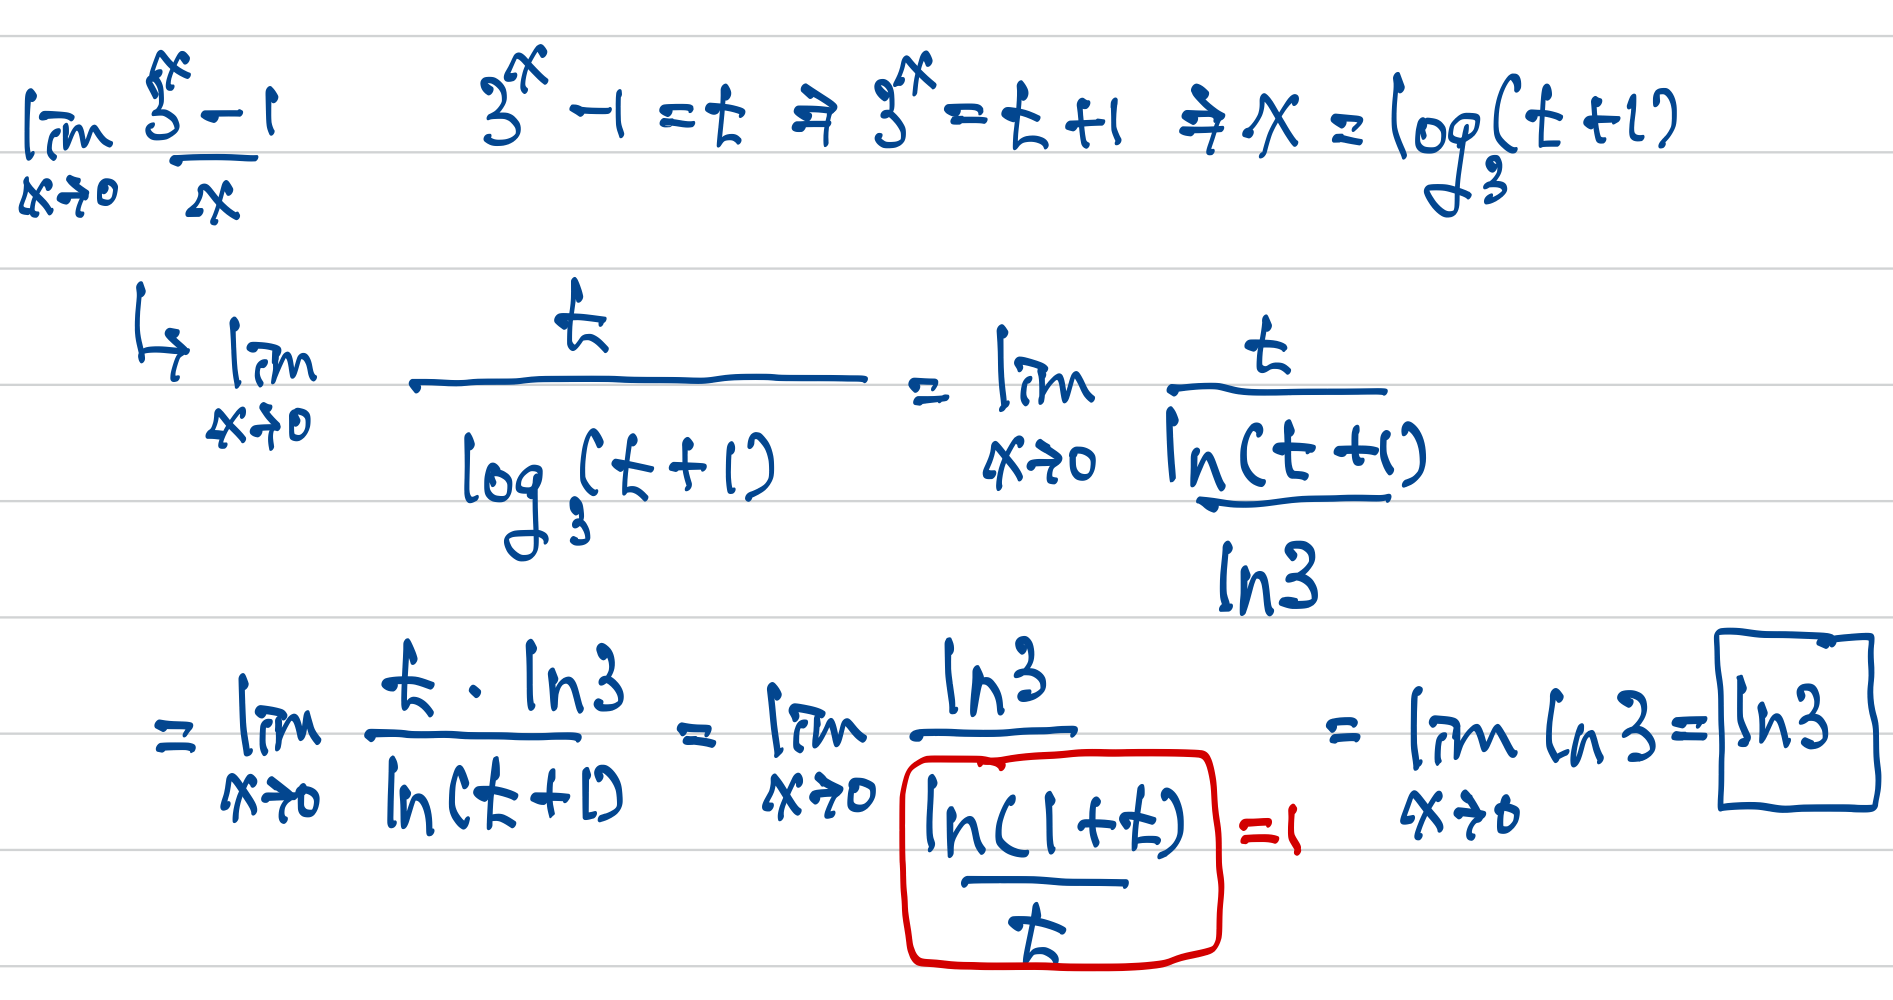 lim x→0 (3^x − 1)/x    3^x − 1 = t ⇒ 3^x = t + 1 ⇒ x = log_3 (t + 1)
↳ lim x→0 t/(log_3 (t + 1)) = lim x→0 t/((ln(t + 1))/(ln3))
= lim x→0 (t · ln3)/(ln(t + 1)) = lim x→0 ln3/((ln(1 + t))/t) =1 = lim x→0 ln 3 = ln3